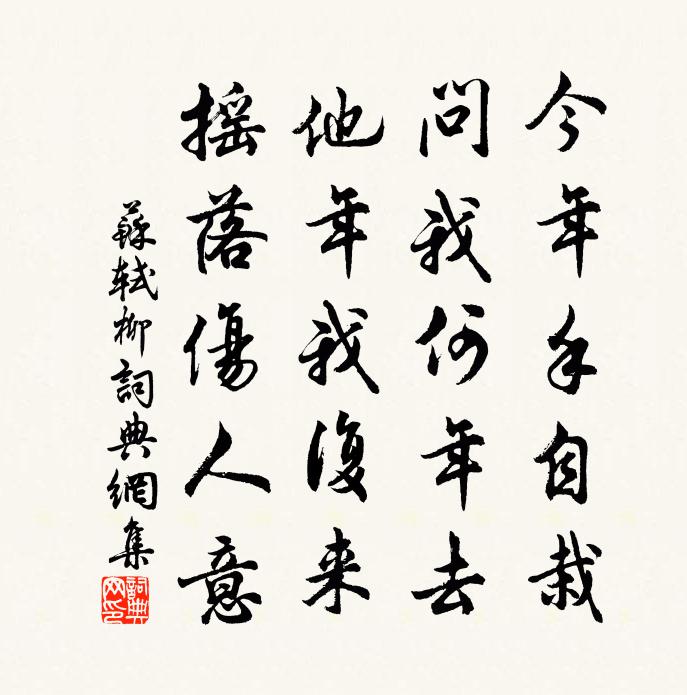 今年手自栽
問我何年去
他年我復来
搖落傷人意
蘇軾柳詞典網集
詞典網印